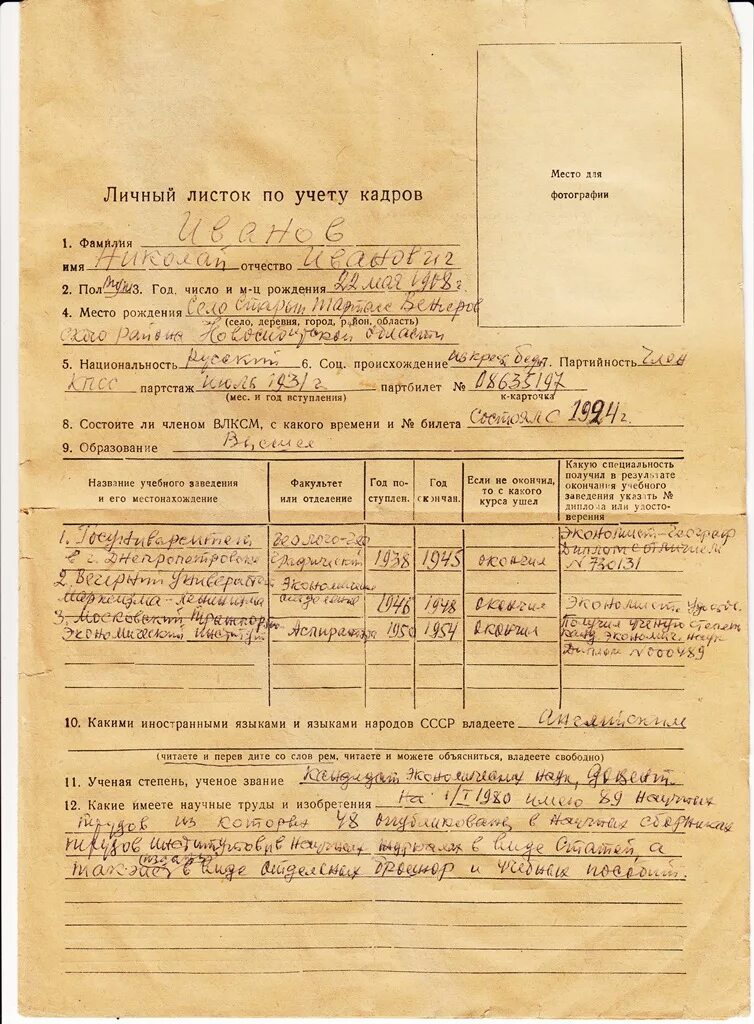 Место для
фотографии
Личный листок по учету кадров
1. Фамилия Иванов
имя Николай отчество Иванович
2. Пол муж 3. Год, число и м-ц рождения 22 мая 1908 г.
4. Место рождения Село Старый Тартасс Венгеров
(село, деревня, город, район, область)
ского района Новосибирской области
5. Национальность Русский 6. Соц. происхождение из крест. бедн. 7. Партийность Член
КПСС партстаж июль 1931 г партбилет № 08635197
(мес. и год вступления) к-карточка
8. Состоите ли членом ВЛКСМ, с какого времени и № билета Состоял с 1924 г.
9. Образование Высшее
Название учебного заведения и его местонахождение
Факультет или отделение
Год поступлен.
Год окончан.
Если не окончил, то с какого курса ушел
Какую специальность получил в результате окончания учебного заведения указать № диплома или удостоверения
1. Госуниверситет в г. Днепропетровске геолого-географический 1938 1945 окончил Экономист-географ Диплом с отличием N 730131
2. Вечерний университет Марксизма-ленинизма Экономическое отделение 1946 1948 окончил Экономист
3. Московский Транспортно Экономический институт Аспирантура 1950 1954 окончил получил ученую степень канд. экономич. наук Диплом N 000489
10. Какими иностранными языками и языками народов СССР владеете Английским
(читаете и перев дите со слов рем, читаете и можете объясниться, владеете свободно)
11. Ученая степень, ученое звание Кандидат экономических наук, Доцент
12. Какие имеете научные труды и изобретения На 1/I 1980 имею 89 научных
трудов из которых 48 опубликованы в научных сборниках
трудов институтов, в научных журналах в виде статей, а
также изданы в виде отдельных брошюр и учебных пособий.